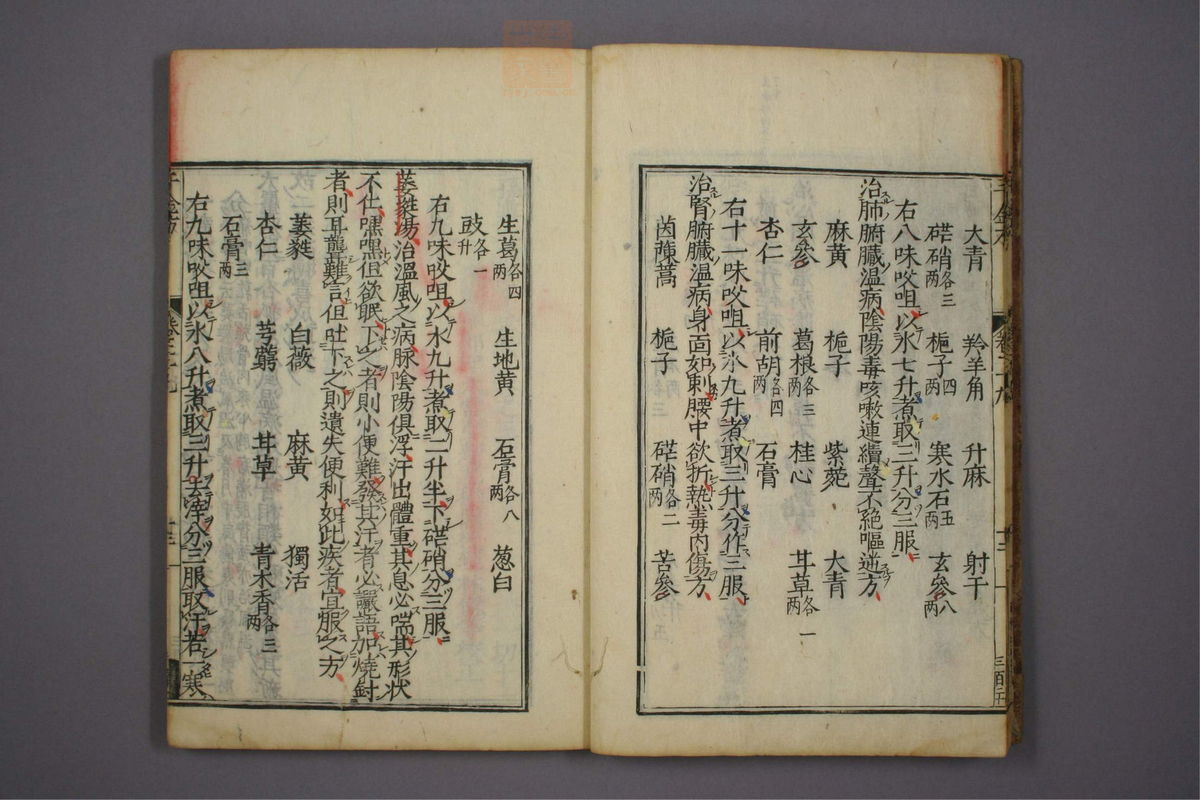 大青 羚羊角 升麻 射干
硭硝各三兩 梔子四兩 寒水石五兩 玄參八兩
右八味㕮咀以水七升煮取三升分三服
治肺腑臟溫病陰陽毒咳嗽連續聲不絕嘔逆方
麻黃 梔子 紫菀 大青
玄參 葛根各三兩 桂心 甘草各一兩
杏仁 前胡各四兩 石膏
右十一味㕮咀以水九升煮取三升分作三服
治腎腑臟溫病身面如刺腰中欲折熱毒內傷方
茵蔯蒿 梔子 硭硝各二兩 苦參
生葛各四兩 生地黃 石膏各八兩 葱白
豉各一升
右九味㕮咀以水九升煮取二升半下硭硝分三服
萎蕤湯治溫風之病脉陰陽俱浮汗出體重其息必喘其形狀
不仁嘿嘿但欲眠下之者則小便難發其汗者必讝語加燒針
者則耳聾難言但吐下之則遺失便利如此疾者宜服之方
萎蕤 白薇 麻黃 獨活
杏仁 芎藭 甘草 青木香各三兩
石膏三兩
右九味㕮咀以水八升煮取三升去滓分三服取汗若一寒